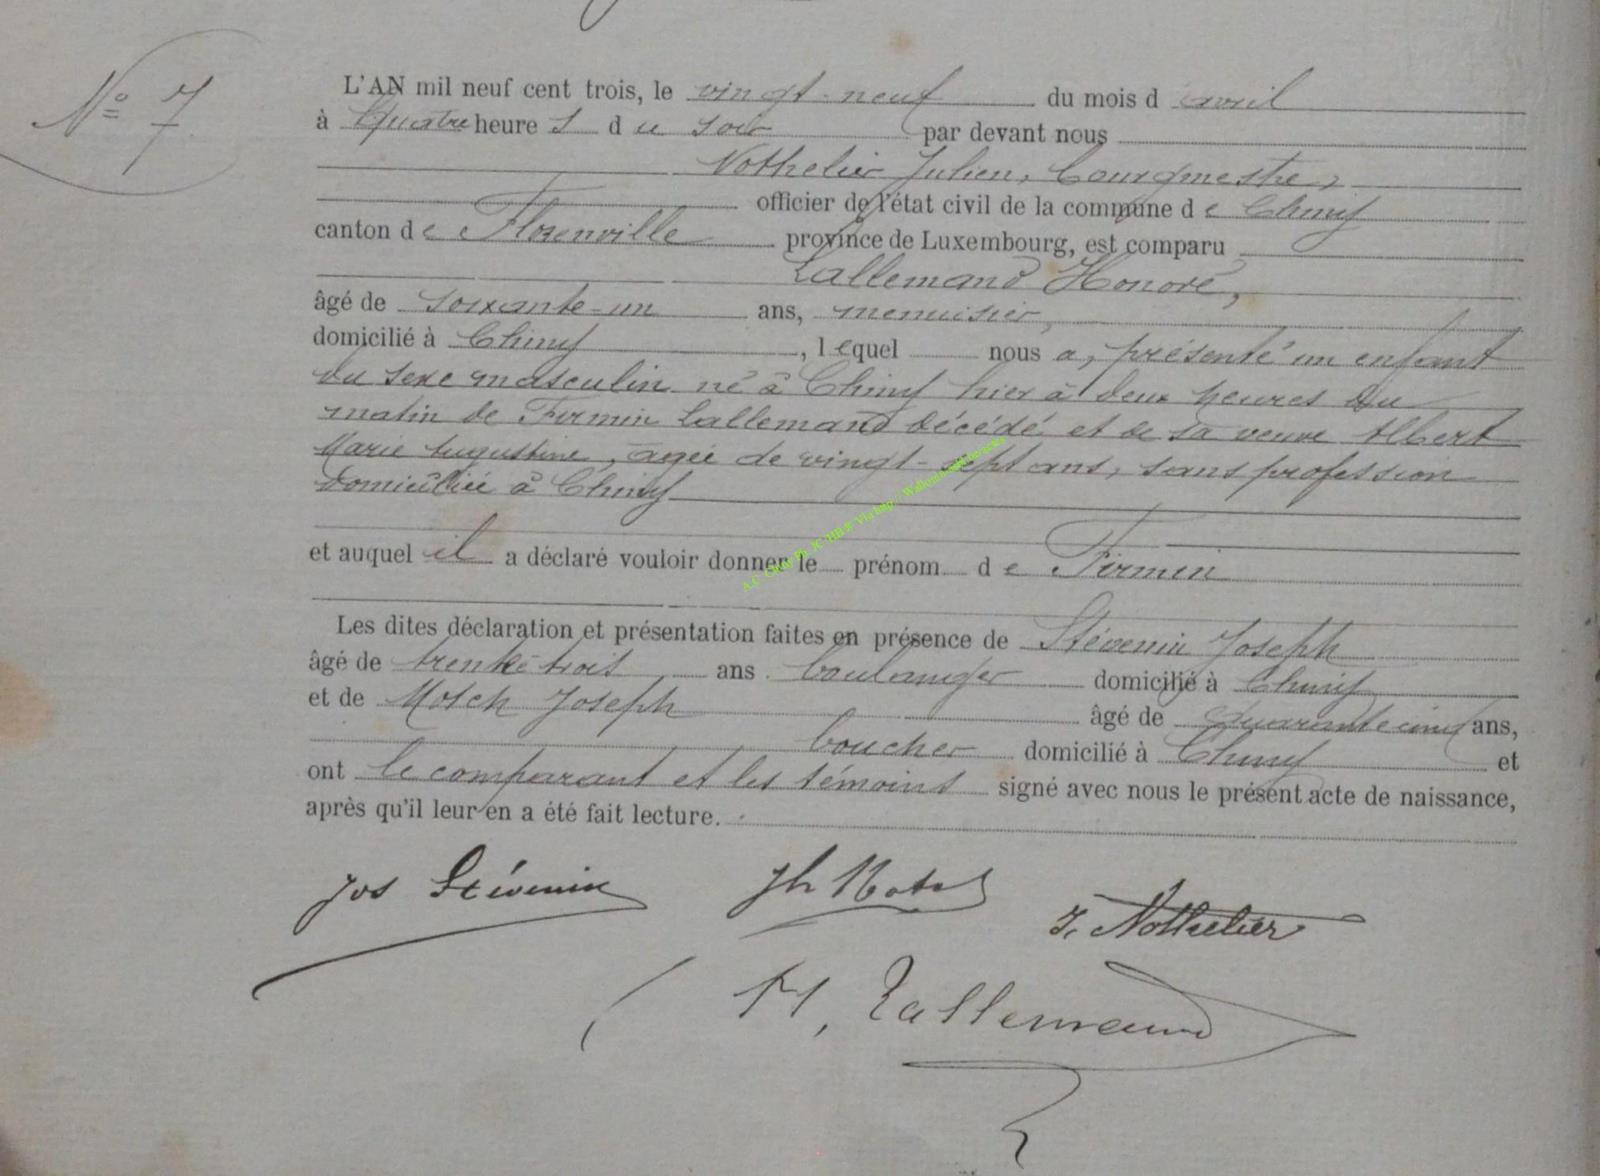 N° 7
L'AN mil neuf cent trois, le vingt-neuf du mois d avril
à Quatre heure s du soir par devant nous
Nothelier Julien, bourgmestre,
officier de l'état civil de la commune de Chiny
canton de Florenville province de Luxembourg, est comparu
Lallemand Honoré,
âgé de soixante-un ans, menuisier,
domicilié à Chiny, lequel nous a, présenté un enfant
du sexe masculin né à Chiny hier à deux heures du
matin de Firmin Lallemand décédé et de sa veuve Albert
Marie Augustine, agée de vingt-sept ans, sans profession
domiciliée à Chiny
et auquel il a déclaré vouloir donner le prénom de Firmin
Les dites déclaration et présentation faites en présence de Stévenin Joseph
âgé de trente trois ans boulanger domicilié à Chiny
et de Motch Joseph âgé de quarante cinq ans,
boucher domicilié à Chiny et
ont le comparant et les témoins signé avec nous le présent acte de naissance,
après qu'il leur en a été fait lecture.
Jos Stévenin Jh J. Nothelier
H, Lallemand